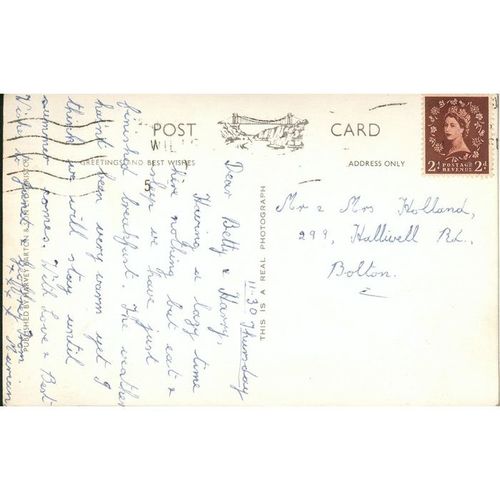 POST CARD
GREETINGS AND BEST WISHES
ADDRESS ONLY
2d 2d
POSTAGE
REVENUE
THIS IS A REAL PHOTOGRAPH
11-30 Thursday
Dear Betty & Harry,
Having a lazy time
here nothing but eat &
sleep we have just
finished breakfast. The weather
hasnt been very warm yet I
think we will stay until
summer comes. With Love & Best
Wishes
Mr & Mrs Holland,
299, Halliwell Rd.
Bolton.
PUBLISHED BY HARVEY BARTON